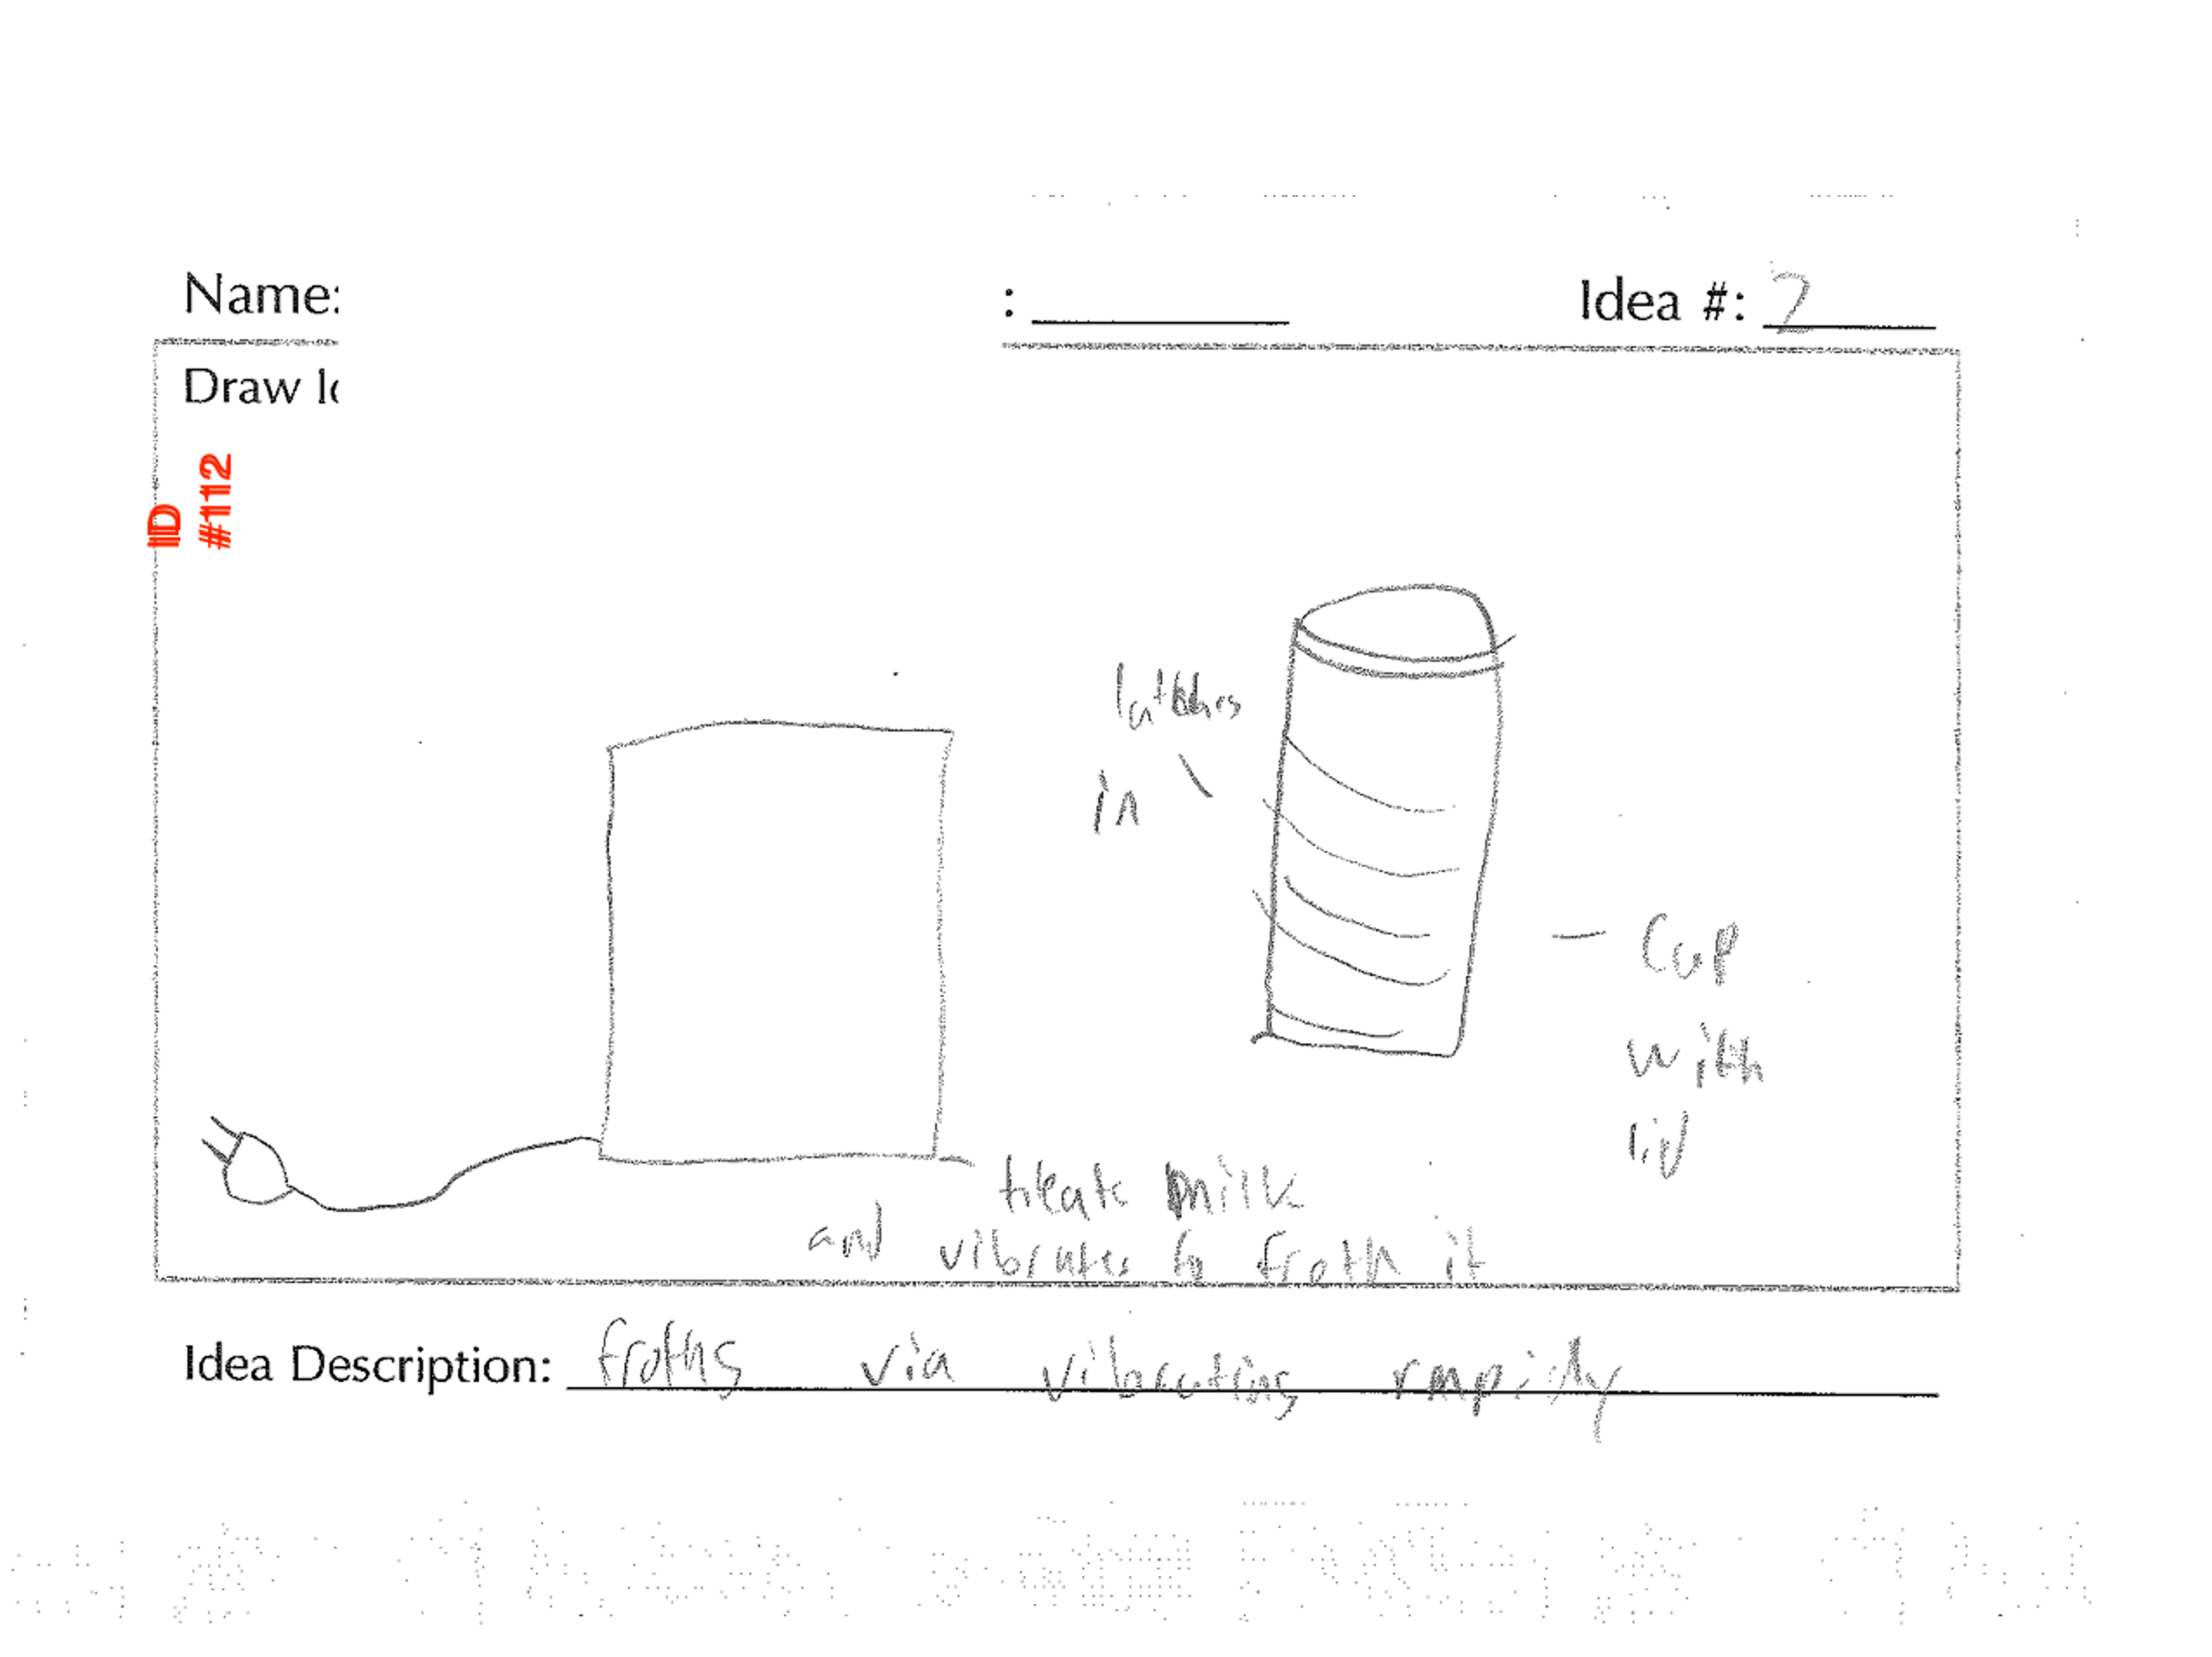 Name:
: Idea #: 2
Draw Id
ID
#112
latches
in
Cup
with
lid
heats milk
and vibrates to froth it
Idea Description: froths via vibrating rapidly